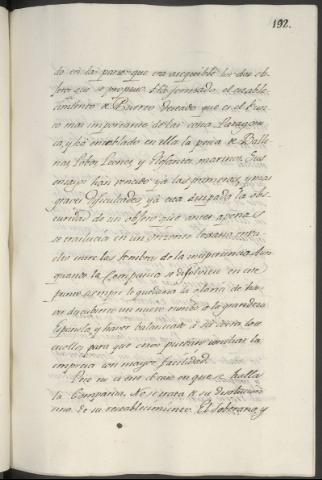 192.
do en la parte que era asequible los dos ob-
jetos que se propuso. Ha formado el estable-
cimiento de Puerto Deseado que es el Puer-
to mas importante de la costa Patagoni-
ca, y ha entablado en ella la pesca de Balle-
nas, Lobos, Leones, y Elefantes marinos. Sus
ensayos han vencido ya las primeras, y mas
graves dificultades ya está disipado la obs-
curidad de un objeto que antes apenas
se traslucia en un orizonte lexano, entre
entre las sombras de la inexperiencia. Aun
quando la Compañia se disolviese en este
punto siempre le quedaria la gloria de ha-
ver descubierto un nuevo mundo a la grandeza
Española, y haver balanceado á su costa los
escollos para que otros puedan concluir la
empresa con mayor facilidad.
Pero no es este el caso en que se halla
la Compañia. No se trata de su disolucion
sino de su restablecimiento. El Soberano, y